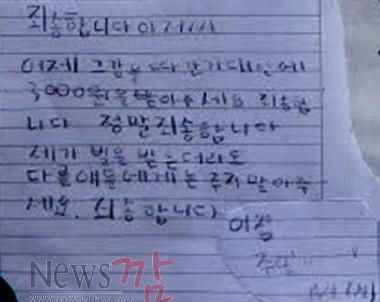 죄송합니다 아저씨
어제 그감을 따 간거대신에
3000원을 받아주세요 죄송합
니다 정말죄송합니다
제가 벌을 받는더라도
다른애들에게는 주지말아주
세요. 죄송합니다
어젯
News깜